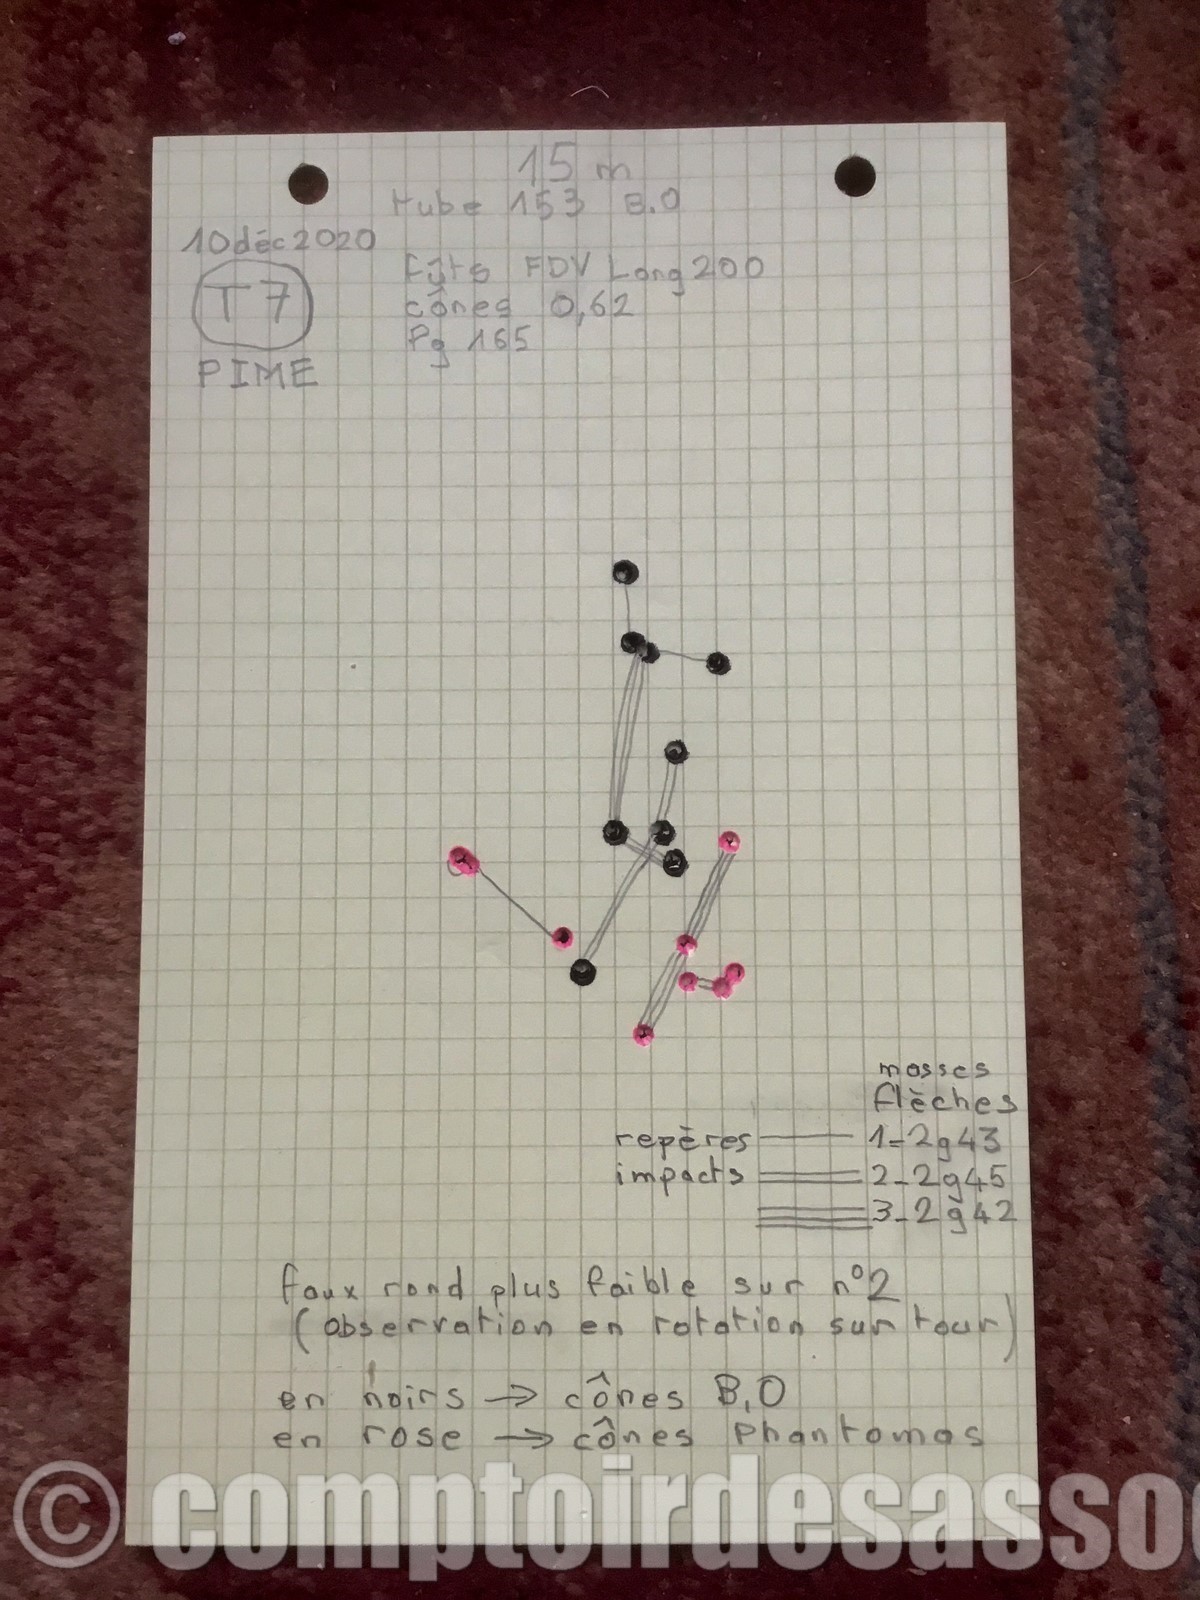 15 m
tube 153 B.O
10 déc 2020
T 7
PIME
Fûts FDV Long 200
cônes 0,62
Pg 165
masses
flèches
repères 1-2g43
impacts 2-2g45
3-2g42
faux rond plus faible sur n°2
(observation en rotation sur tour)
en noirs → cônes B.O
en rose → cônes Phantomas
© comptoirdesasso